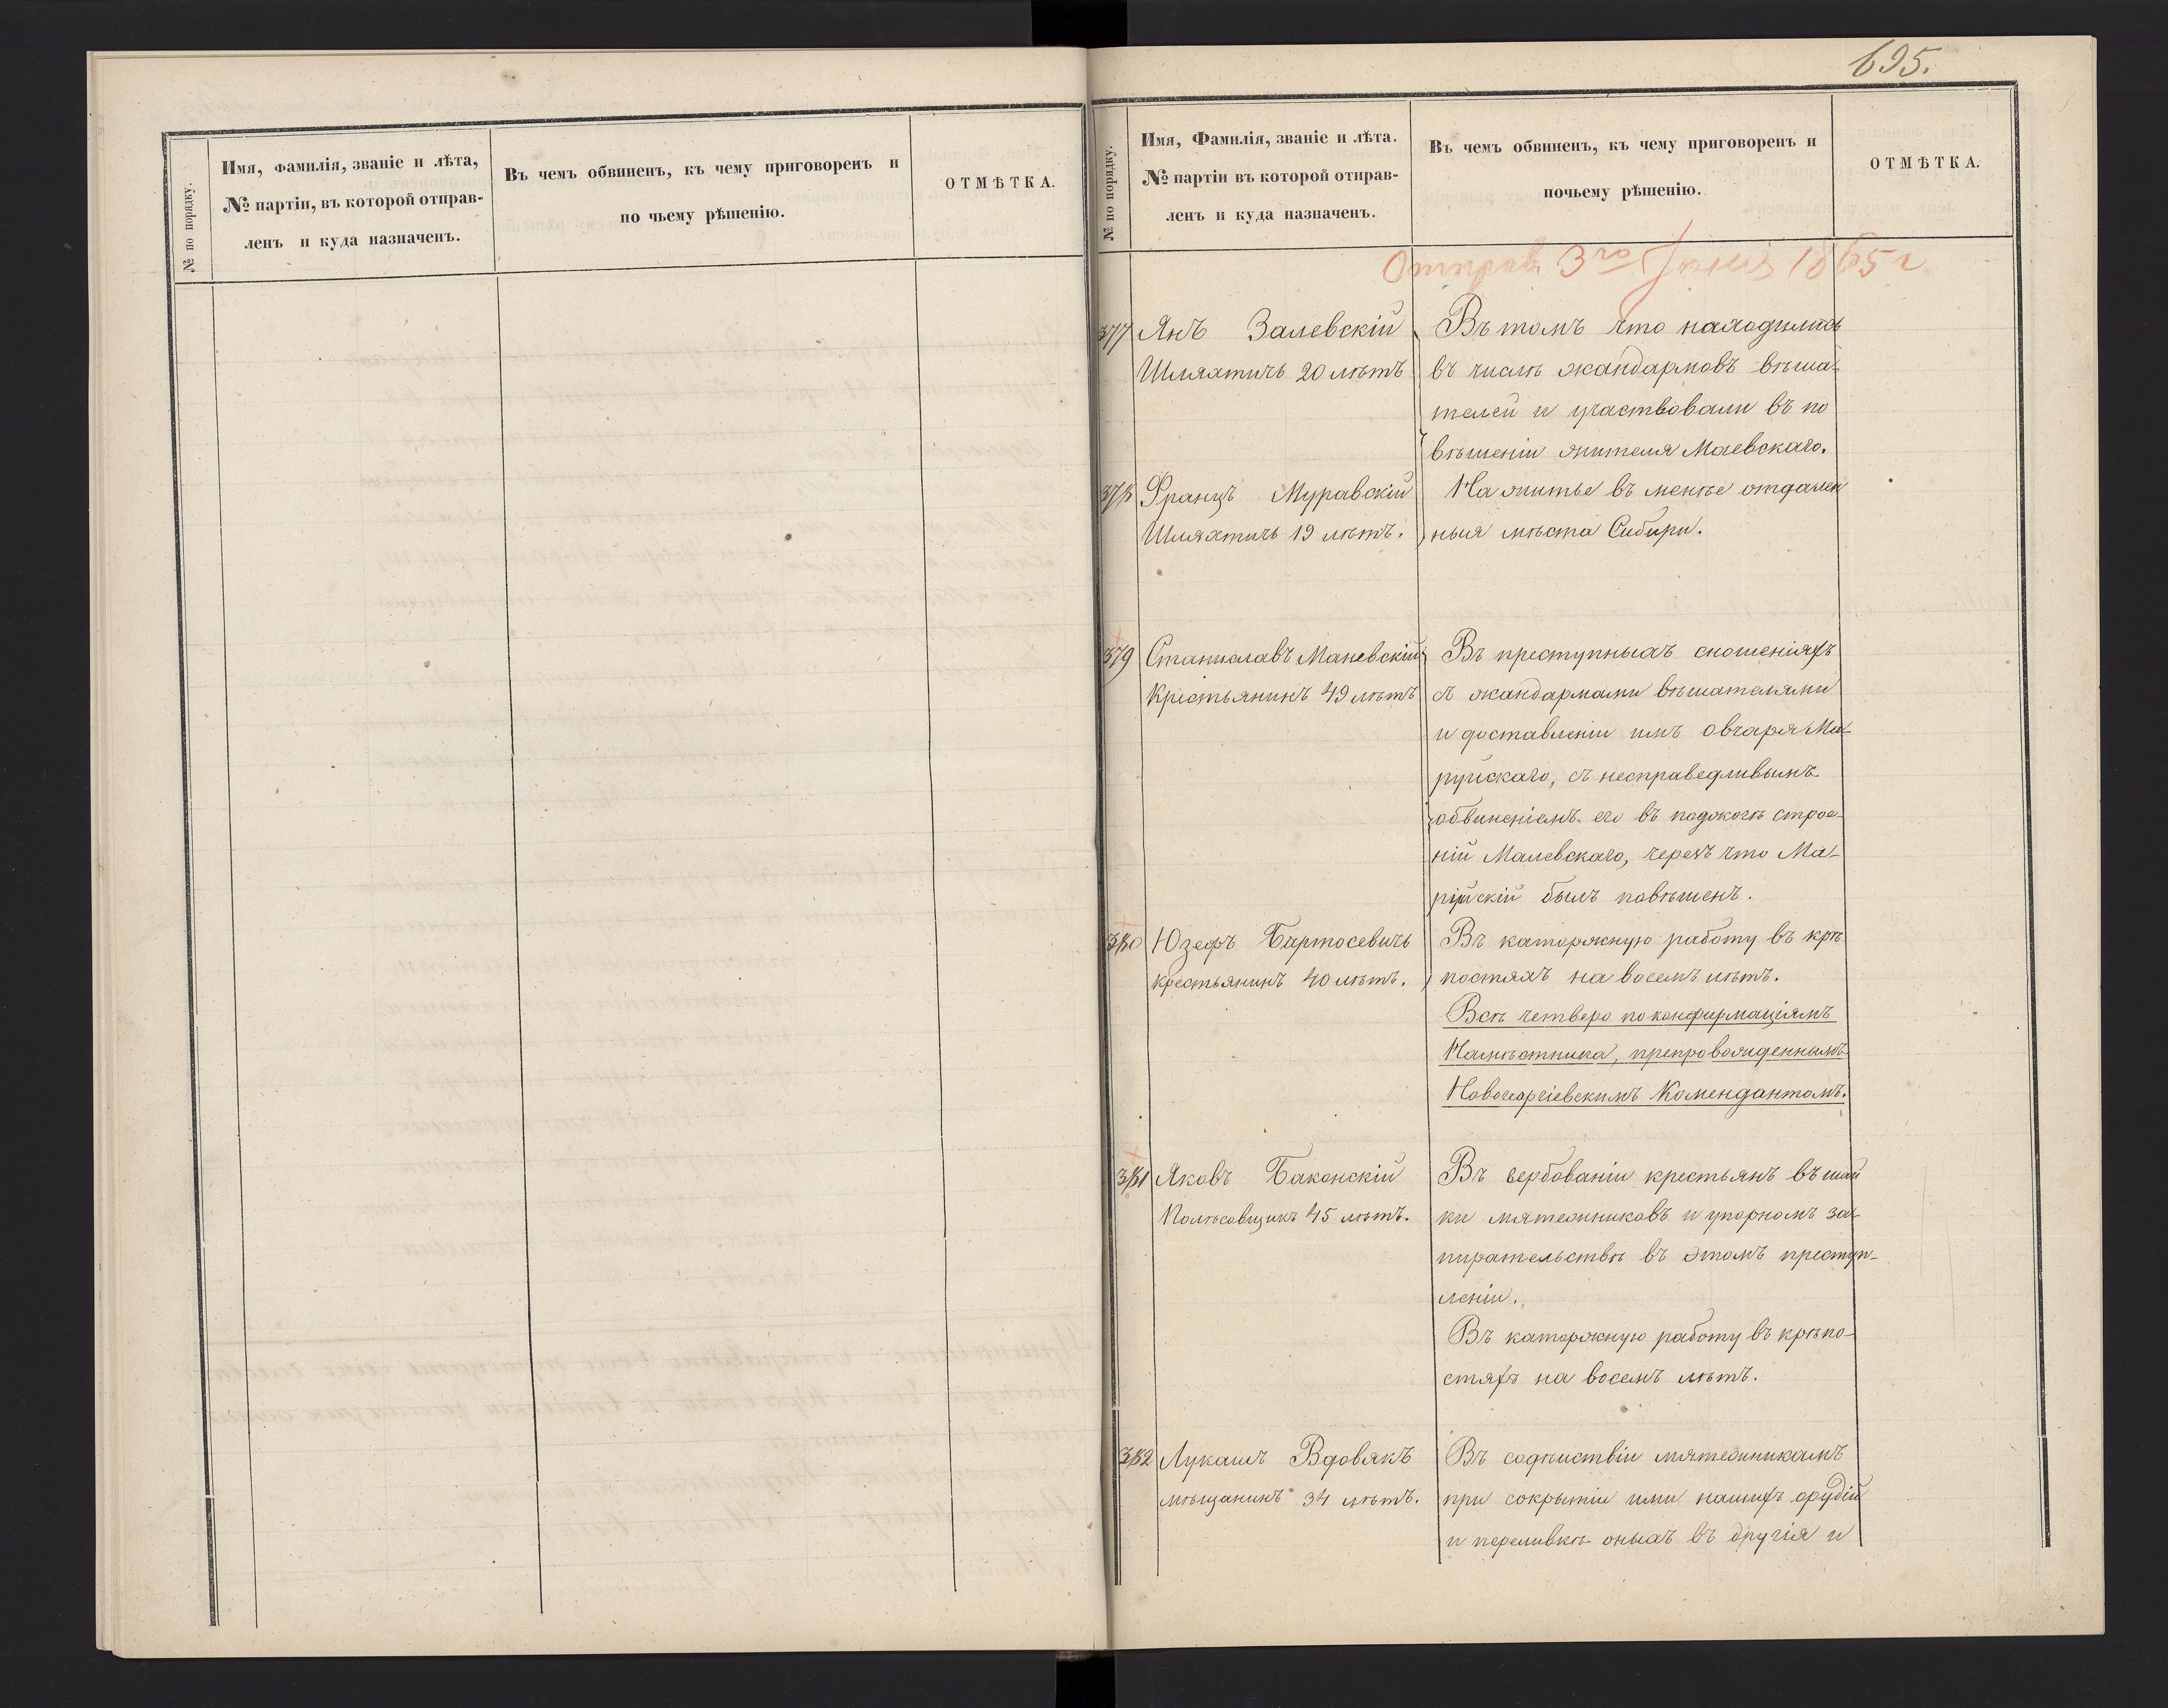 695.
№ по порядку.
Имя, фамилія, званіе и лѣта,
№ партіи, въ которой отправ-
ленъ и куда назначенъ.
Въ чемъ обвиненъ, къ чему приговоренъ и
по чьему рѣшенію.
ОТМѢТКА.
№ по порядку.
Имя, Фамилія, званіе и лѣта.
№ партіи въ которой отправ-
ленъ и куда назначенъ.
Въ чемъ обвиненъ, къ чему приговоренъ и
почьему рѣшенію.
ОТМѢТКА.
Отправ 3го Іюня 1865 г
377 Янъ Залевскій
Шляхтичь 20 лѣтъ
Въ томъ что находились
въ числѣ жандармовъ вѣша-
телей и участвовали въ по
вѣшеніи жителя Маевскаго.
378 Францъ Муравскій
Шляхтичь 19 лѣтъ.
На житье въ менѣе отдален
ныя мѣста Сибири.
379 Станиславъ Маневскій
Крестьянинъ 49 лѣтъ
Въ преступныхъ сношеніяхъ
съ жандармами вѣшателями
и доставленіи имъ овчаря Ма-
рушскаго, съ несправедливымъ
обвиненіемъ его въ поджогѣ строе-
ній Малевскаго, черезъ что Ма-
рійскій былъ повѣшенъ.
380 Юзефъ Бартосевичь
крестьянинъ 40 лѣтъ.
Въ каторжную работу въ крѣ
постяхъ на восемь лѣтъ.
Всѣ четверо по конфирмаціямъ
Намѣстника, препровожденнымъ
Новогеоргіевскимъ Комендантомъ.
381 Яковъ Баконскій
Полѣсовщикъ 45 лѣтъ.
Въ вербованіи крестьянъ въ шай
ки мятежниковъ и упорномъ за-
пирательствѣ въ этомъ преступ-
леніи.
Въ каторжную работу въ крѣпо-
стяхъ на восемь лѣтъ.
382 Лукашъ Вдовякъ
мѣщанинъ 34 лѣтъ.
Въ содѣйствіи мятежникамъ
при сокрытіи ими нашихъ орудій
и переливкѣ оныхъ въ другія и